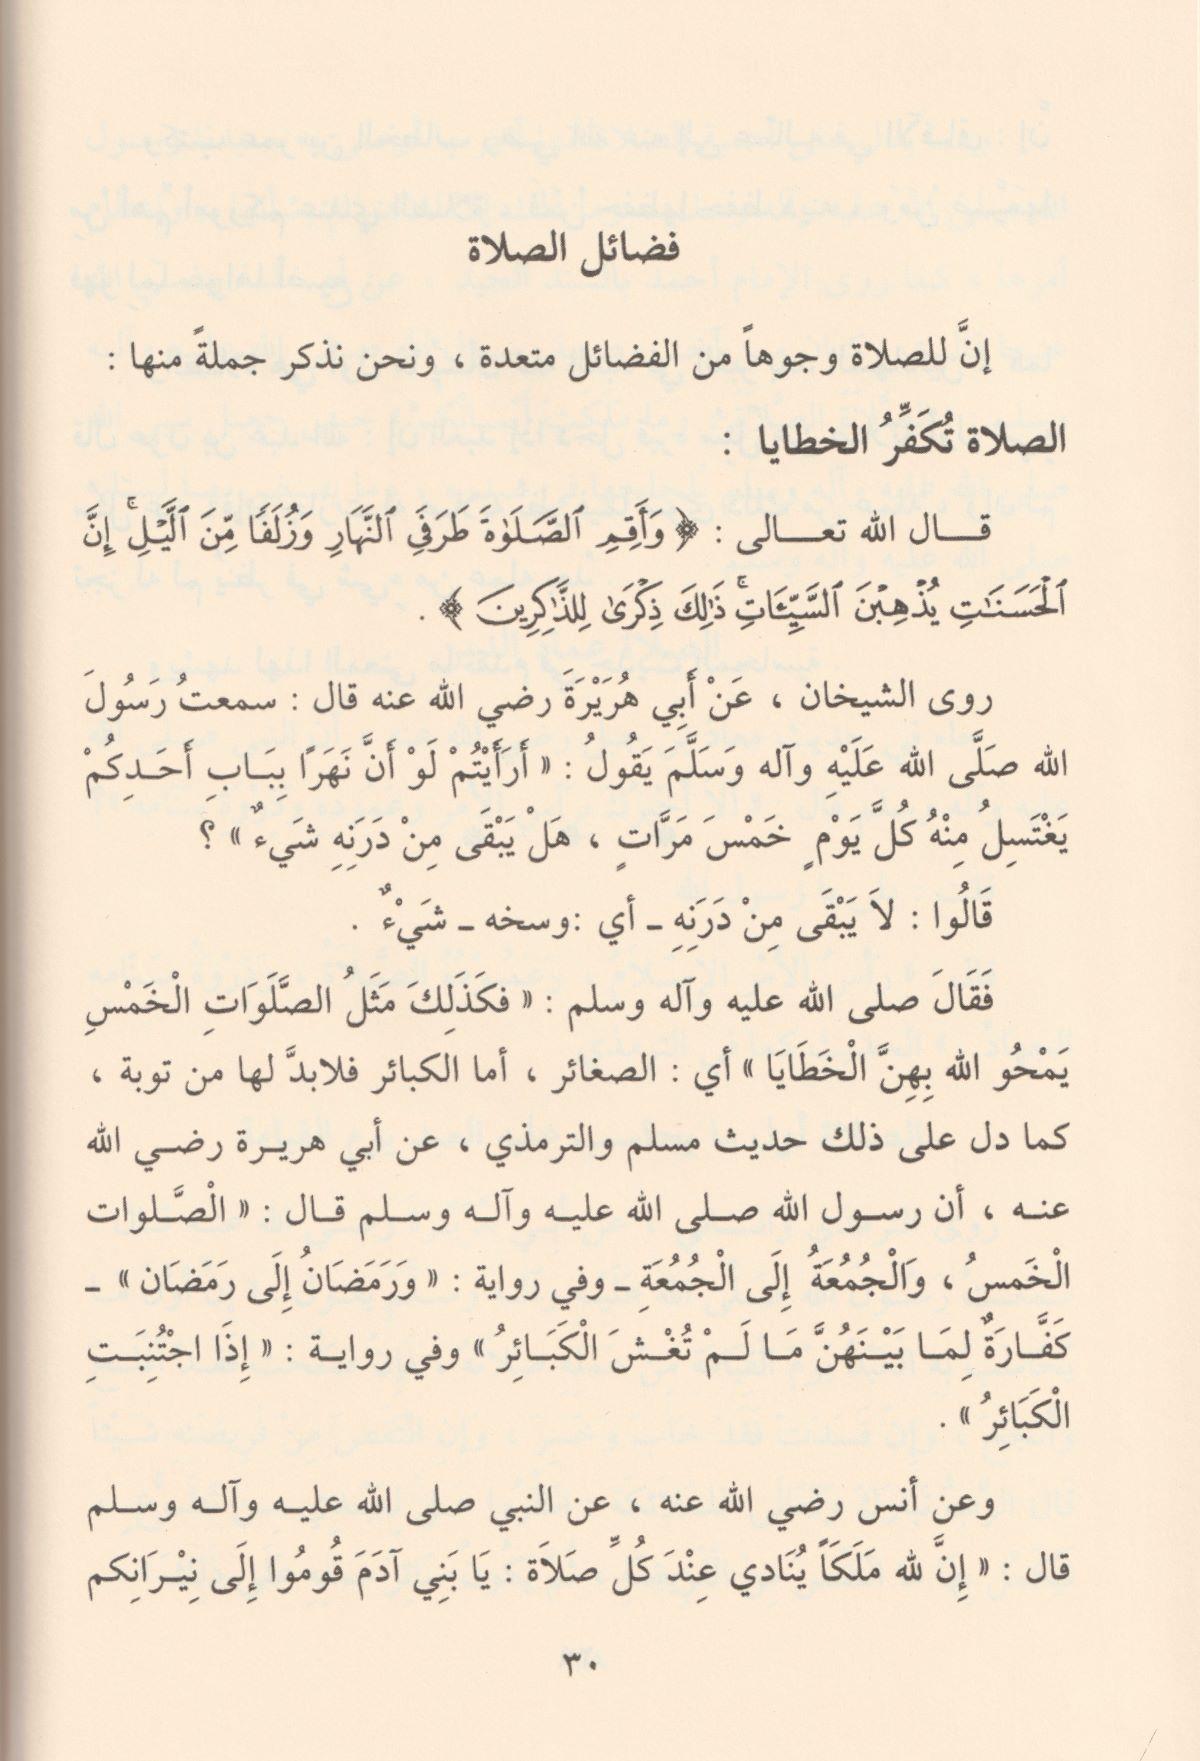 فضائل الصلاة
إنَّ للصلاة وجوهاً من الفضائل متعدة ، ونحن نذكر جملةً منها :
الصلاة تُكَفِّرُ الخطايا :
قـــال الله تعـــالى : ﴿ وَأَقِمِ ٱلصَّلَوٰةَ طَرَفَيِ ٱلنَّهَارِ وَزُلَفًا مِّنَ ٱلَّيْلِ ۚ إِنَّ
ٱلْحَسَنَـٰتِ يُذْهِبْنَ ٱلسَّيِّـَٔاتِ ۚ ذَٰلِكَ ذِكْرَىٰ لِلذَّٰكِرِينَ ﴾ .
روى الشيخان ، عَنْ أَبِي هُرَيْرَةَ رضي الله عنه قال : سمعتُ رَسُولَ
الله صَلَّى الله عَلَيْهِ وآله وَسَلَّمَ يَقُولُ : « أَرَأَيْتُمْ لَوْ أَنَّ نَهَرًا بِبَـابِ أَحَـدِكُمْ
يَغْتَسِلُ مِنْهُ كُلَّ يَوْمٍ خَمْسَ مَرَّاتٍ ، هَلْ يَبْقَى مِنْ دَرَنِهِ شَيءٌ » ؟
قَالُوا : لاَ يَبْقَى مِنْ دَرَنِهِ ـ أي :وسخه ـ شَيْءٌ .
فَقَالَ صلى الله عليه وآله وسلم : « فكَذَلِكَ مَثَلُ الصَّلَوَاتِ الْخَمْسِ
يَمْحُو الله بِهِنَّ الْخَطَايَا » أي : الصغائر ، أما الكبائر فلابدَّ لها من توبة ،
كما دل على ذلك حديث مسلم والترمذي ، عن أبي هريـرة رضـي الله
عنـه ، أن رسـول الله صـلى الله عليـه وآلـه وسـلم قـال : « الْصَّـلوات
الْخَمسُ ، وَالْجُمُعَةُ إِلَى الْجُمُعَةِ ـ وفي رواية : « وَرَمَضَانُ إِلَى رَمَضَان » ـ
كَفَّـارَةٌ لِمَـا بَيْـنَهُنَّ مَـا لَـمْ تُغْـشَ الْكَبَـائِرُ » وفي روايـة : « إِذَا اجْتُنِبَـتِ
الْكَبَائِرُ » .
وعن أنس رضي الله عنه ، عن النبي صلى الله عليـه وآلـه وسـلم
قال : « إِنَّ لله مَلَكَاً يُنَادي عِنْدَ كُلِّ صَلاَة : يَا بَنِي آدَمَ قُومُوا إِلَى نِيْـرَانِكم
٣٠